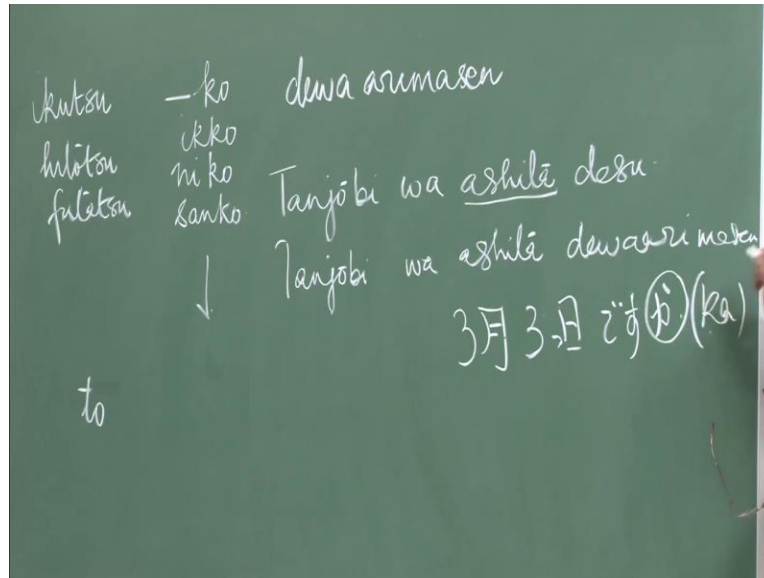 ikutsu
hitotsu
futatsu
-ko
ikko
niko
sanko
to
dewa arimasen
Tanjōbi wa ashita desu.
Tanjōbi wa ashita dewa arimasen
3月3日ですか(ka)